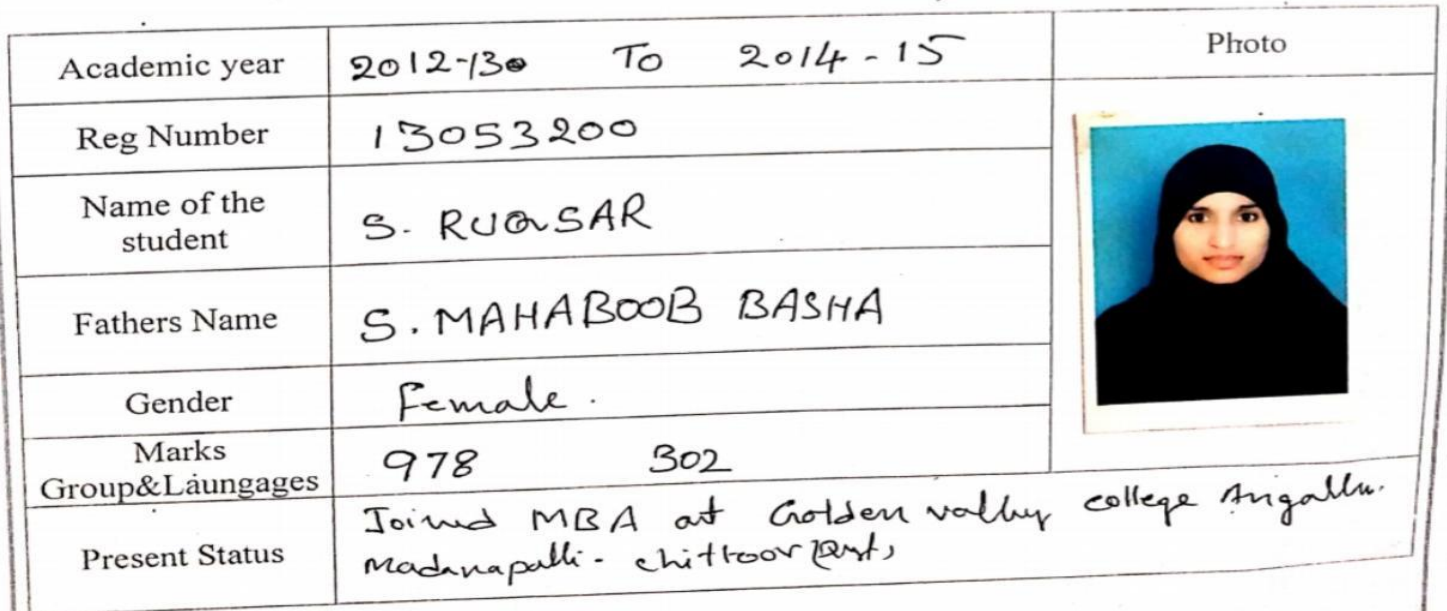 Academic year 2012-13 To 2014-15 Photo
Reg Number 13053200
Name of the
student
S. RUQSAR
Fathers Name S. MAHABOOB BASHA
Gender Female.
Marks
Group&Laungages
978 302
Present Status
Joined MBA at Golden valley college Angallu.
Madanapalli - chittoor